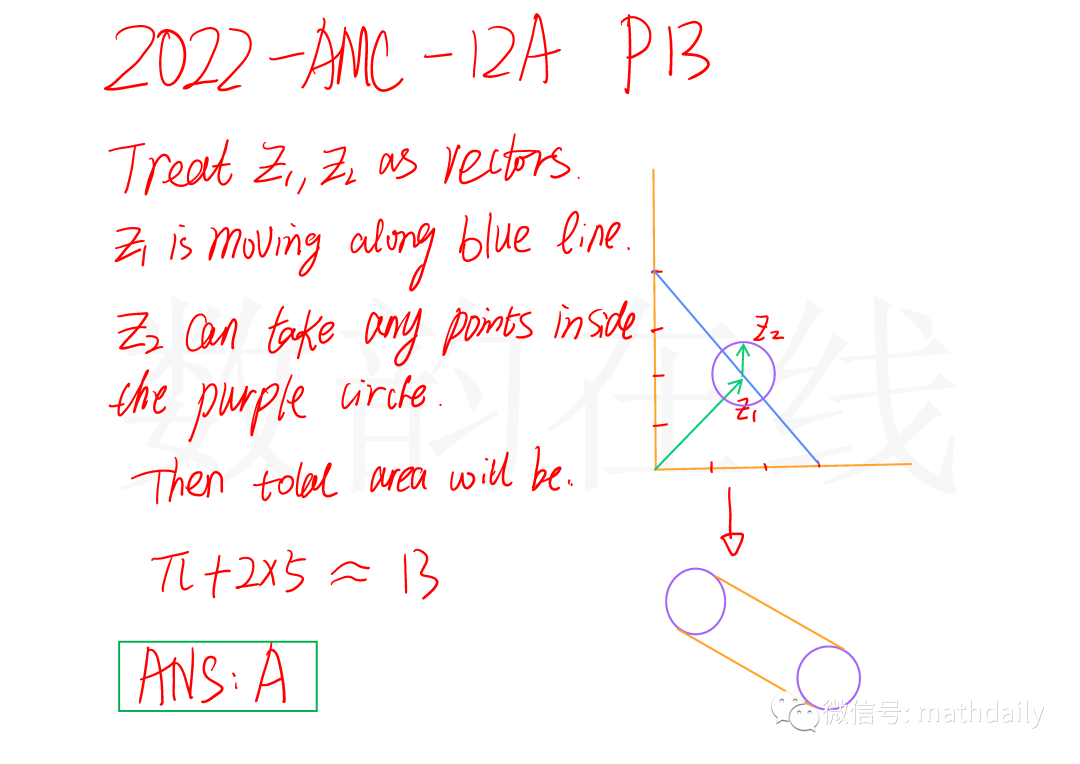 2022-AMC-12A P13
Treat Z₁, Z₂ as vectors.
Z₁ is moving along blue line.
Z₂ can take any points inside
the purple circle.
Then total area will be.
π+2×5 ≈ 13
ANS: A
Z₂
Z₁
数韵在线
微信号: mathdaily